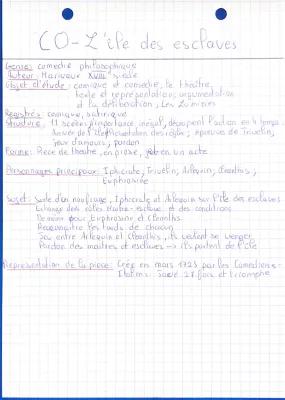 CO - L'île des esclaves
Genre: comédie philosophique
Auteur: Marivaux XVIIIe siècle
Objet d'étude: comique et comédie, le théâtre,
texte et représentation, argumentation
et la délibération, Les Lumières
Registres: comique, satirique
Structure: 11 scènes d'importance inégal, découpent l'action en 4 temps.
Arrivée de l'île, des règles; épreuves de Trivelin;
jeux d'amours; pardon
Forme: Pièce de théâtre, en prose, en un acte
Personnages principaux: Iphicrate; Trivelin; Arlequin; Cléanthis;
Euphrosine
Sujet: Suite d'un naufrage, Iphicrate et Arlequin sur l'île des esclaves
Echange des rôles Maître-esclave et des conditions
Demain pour Euphrosine et Cléanthis.
Reconnaître les torts de chacun
Jeu entre Arlequin et Cléanthis, ils veulent se venger
Pardon des maîtres et esclaves -> ils partent de l'île
Représentation de la pièce: Créé en mars 1725 par les Comédiens-
Italiens. Joué 21 fois et triomphe